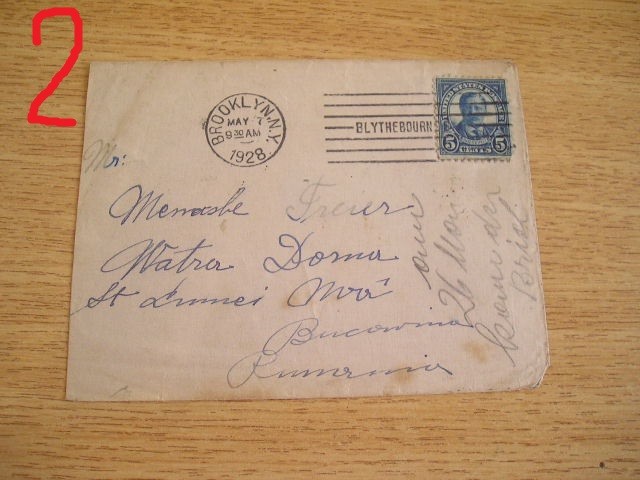 2
BROOKLYN, N.Y.
MAY 7
9 30 AM
1928
BLYTHEBOURNE
UNITED STATES POSTAGE
5 5
Mr:
Menashe Freier
Watra Dorna
Bucowina
Rumania
26 Mai
Brief